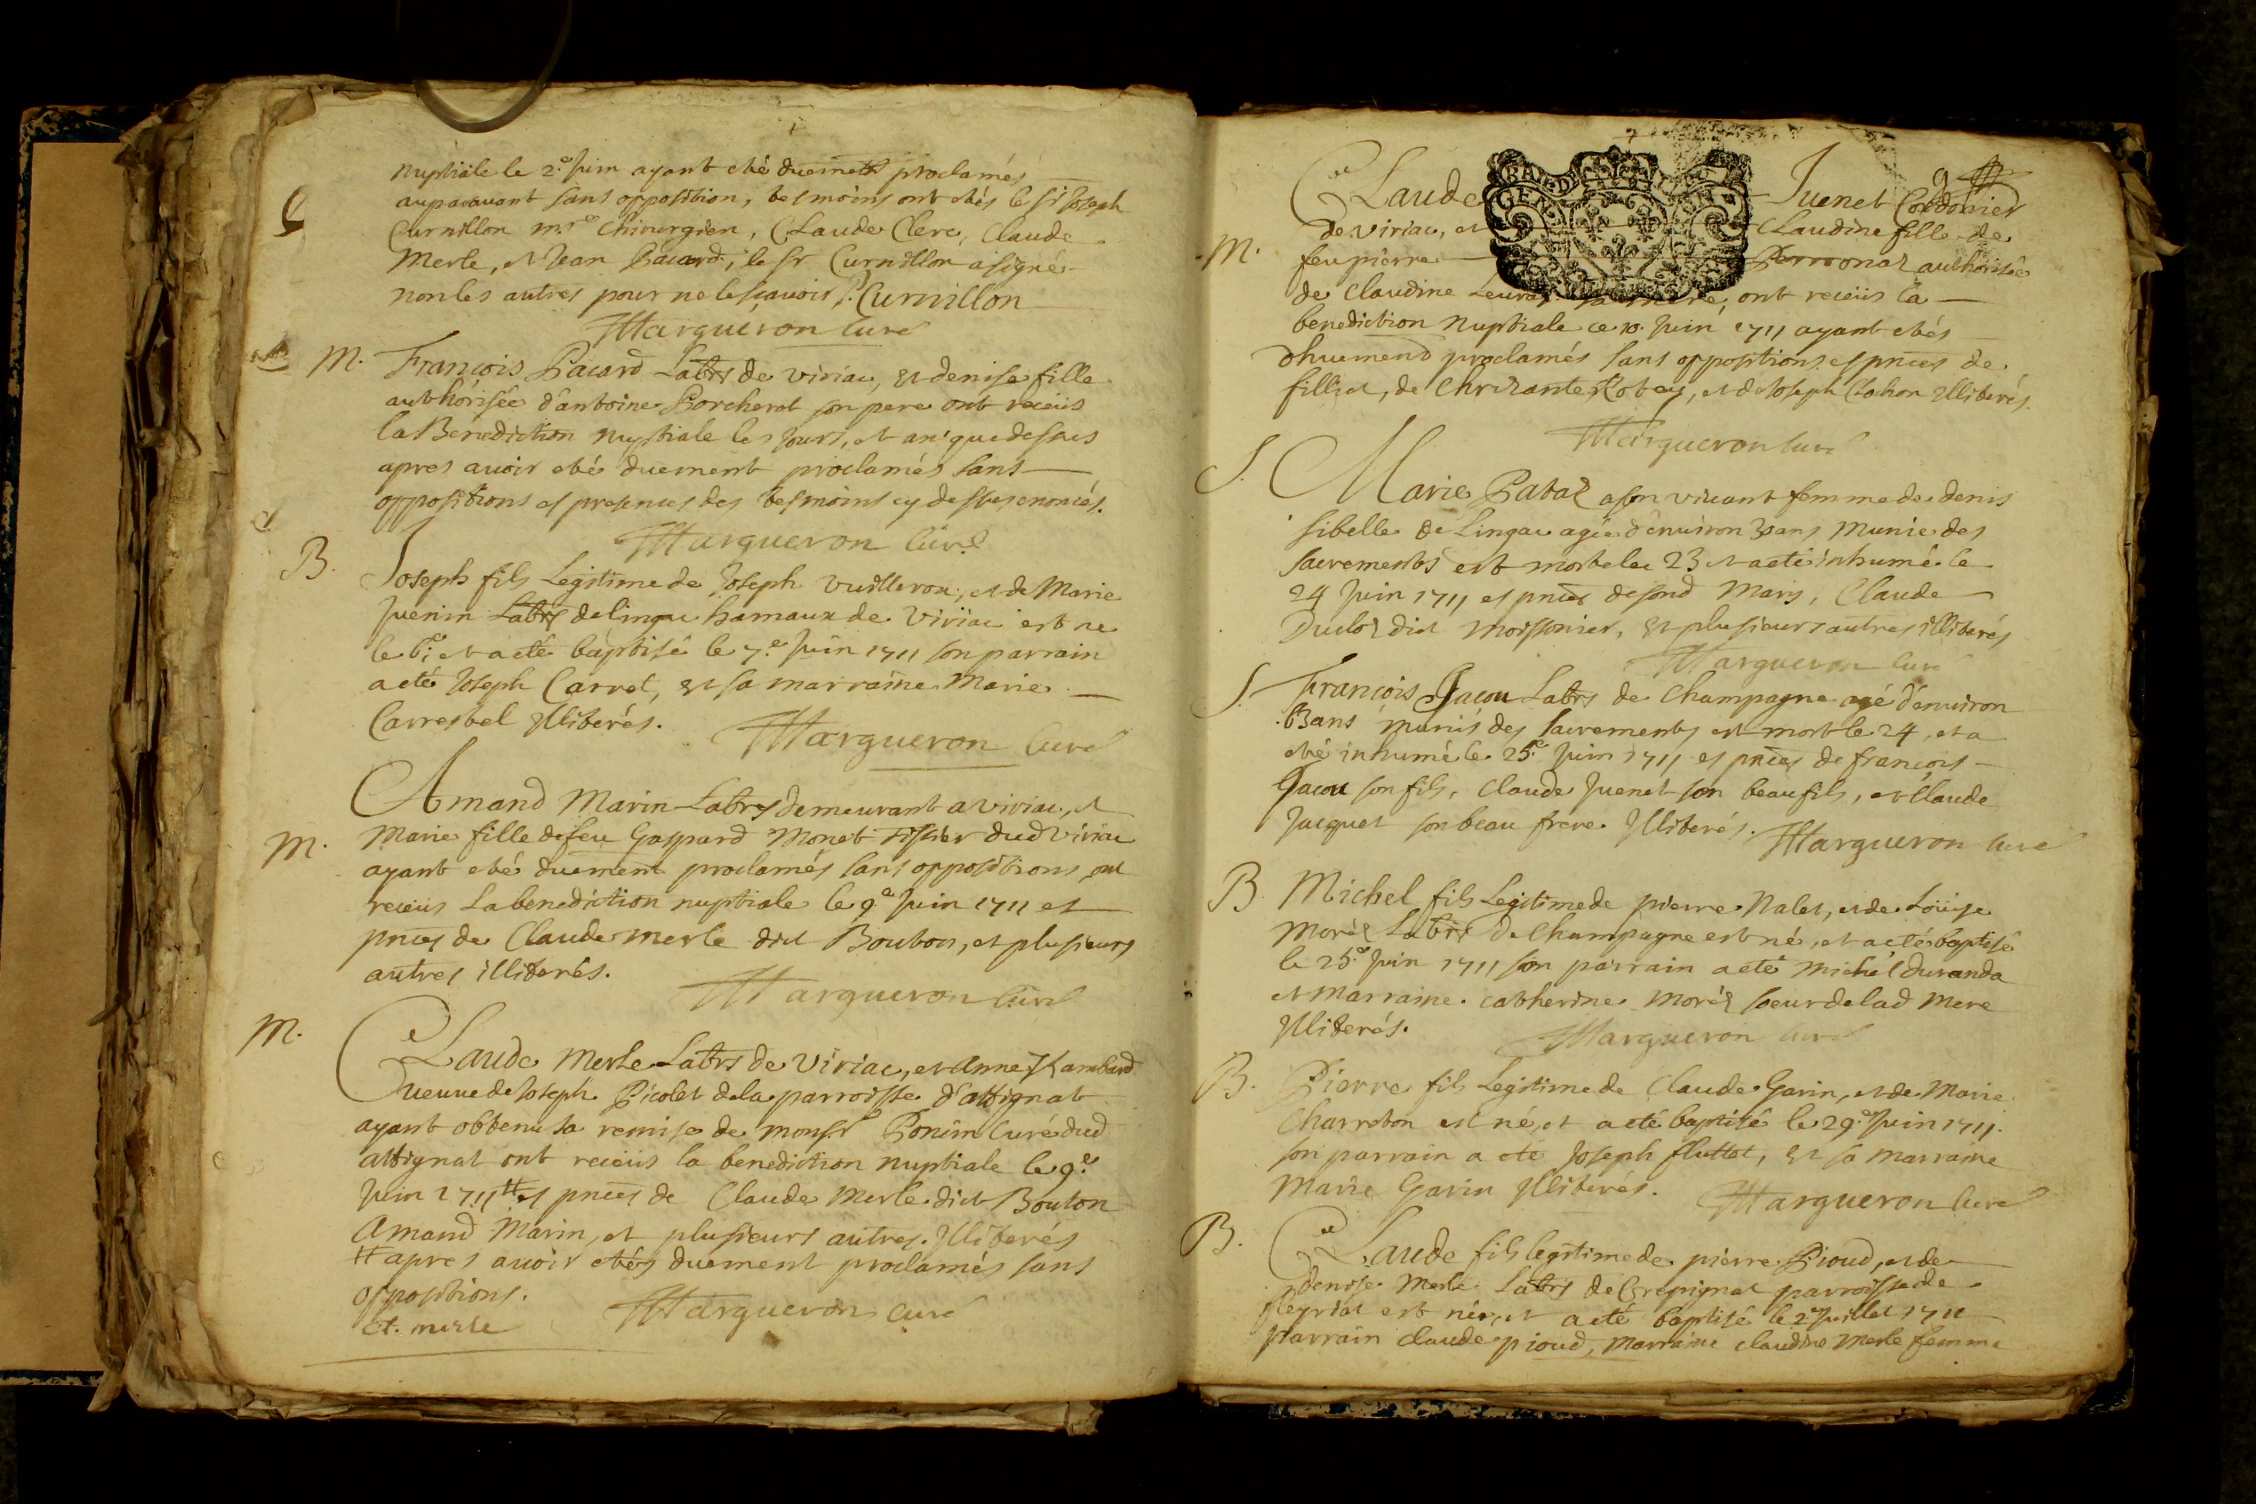 nuptiale le 2.e Juin ayant eté duement proclamés
auparavant sans opposition, tesmoins ont etés le sr Joseph
Curnillon mre Chirurgien, Claude Clerc, Claude
Merle, et Jean Pacard, le sr Curnillon a signé
non les autres pour ne le sçavoir J. Curnillon
Margueron Curé
M. François Pacard Labrs de viriac, et denise fille
authorisée d'antoine Borcherat son pere ont recëus
la Benediction nuptiale les jours, et an que dessus
apres avoir eté duement proclamés sans
oppositions es presences des tesmoins cy dessus enoncés.
Margueron Curé
B. Joseph fils Legitime de Joseph vuilleron, et de Marie
Juenin Labrs de lingu hamaux de Viriac est ne
le 6.e et a eté baptisé le 7.e Juin 1711 son parrain
a eté Joseph Carret, et sa marraine Marie
Carrestel Illiterés.
Margueron Curé
Amand Marin Labrs demeurant a viriac, et
M. Marie fille de feu Gaspard Monet Tissier dud Viriac
ayant eté duement proclamés sans oppositions ont
recëus La benediction nuptiale le 9.e Juin 1711 es
pnces de Claude merle dict Bouton, et plusieurs
autres illiterés.
Margueron Curé
M. Claude Merle Labrs de Viriac, et Anne Rambard
veuve de Joseph Picolet de la parroisse d'attignat
ayant obtenu la remise de monsr Ponin Curé dud
attignat ont recëus la benediction nuptiale le 9.e
Juin 1711 # es pnces de Claude Merle dict Bouton
Amand Marin, et plusieurs autres Illiterés
# apres avoir etés duement proclamés sans
oppositions.
ct. merle Margueron Curé
9
Claude Juenet Cordonier
de viriac, et Claudine fille de
M. feu pierre Perronaz authorisée
de Claudine ont recëus la
benediction Nuptiale ce 10. Juin 1711 ayant etés
dhuemend proclamés sans oppositions es pnces de
filliet, de Chrizante Robey, et de Joseph Chohon Illiterés.
Margueron Curé
S. Marie Pataz a son vivant femme de denis
sibelle de Lingac agée d'environ ans Munie des
sacrements est morte le 23 et a eté inhumé le
24 Juin 1711 es pnces desond Mary, Claude
Ducloz dict moissonier, et plusieurs autres illiterés
Margueron Curé
S. François Jacou Labrs de Champagne agé d'environ
63 ans munis des sacrements est mort le 24, et a
eté inhumé le 25.e Juin 1711 es pnces de françois
Jacou son fils, Claude Juenet son beaufils, et Claude
Jacquet son beau frere Illiterés. Margueron Curé
B. Michel fils Legitime de pierre Nalet, et de Loüyse
Moréz Labrs de Champagne est né, et a eté baptisé
le 25.e Juin 1711 son parrain a eté Michel duranda
et marraine Catherine Moréz soeur de lad Mere
Illiterés. Margueron Curé
B. Pierre fils Legitime de Claude Gavin, et de Marie
Charreton est né, et a eté baptisé le 29.e Juin 1711.
son parrain a eté Joseph fluttet, et sa marraine
Marie Gavin Illiterés. Margueron Curé
B. Claude fils legitime de pierre Pioud, et de
denise Merle Labrs de Crepignat parroisse de
fleyriat est né, et a eté baptisé le 2.e Juillet 1711
parrain claude pioud, Marraine claudine Merle femme